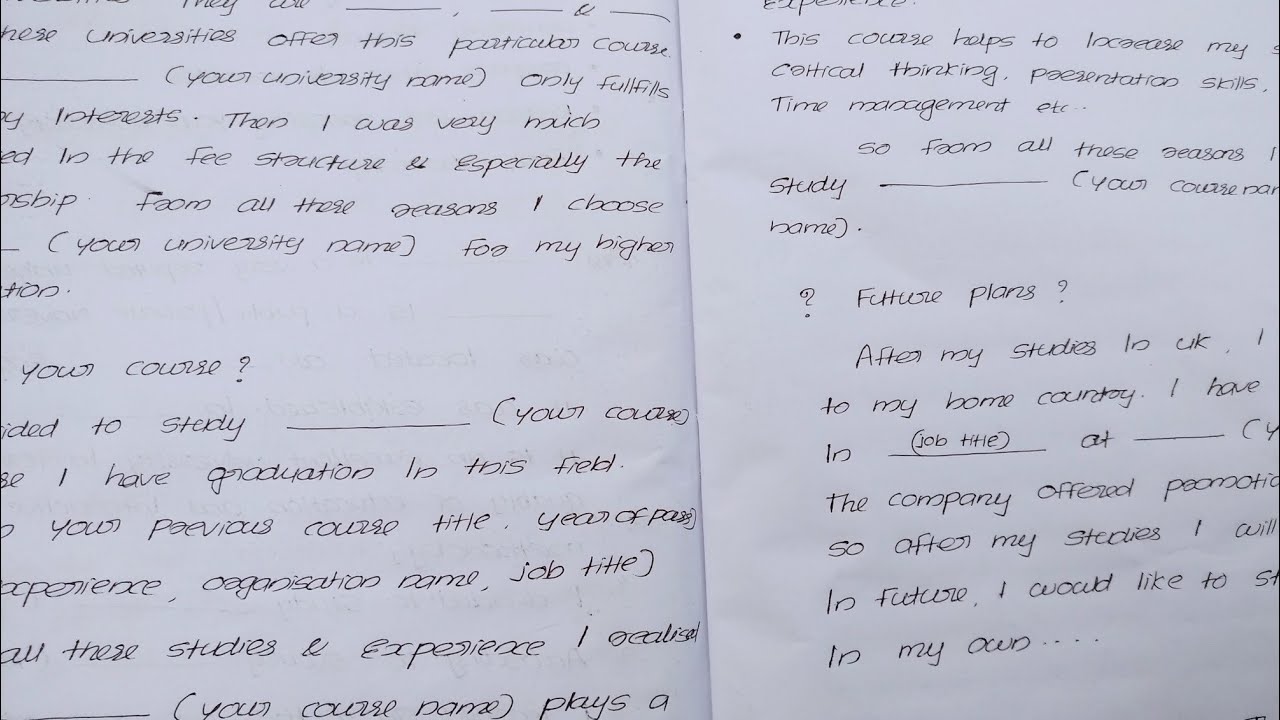 They are ______ , ____ & ____
these universities offer this particular course.
____________ (your university name) only fullfills
my Interests. Then I was very much
ed In the fee structure & Especially the
nship. From all these reasons I choose
__ (your university name) for my higher
tion.
your course?
ided to study ____________ (your course)
se I have graduation In this field.
your previous course title, year of pass)
experience, organisation name, job title)
all these studies & Experience I realised
____________ (your course name) plays a
Experience.
• This course helps to Increase my s
critical thinking, presentation skills,
Time management etc..
so from all these reasons I
study ____________ (your course nam
name).
? Future plans?
After my studies In uk, I
to my home country. I have
In (job title) at ______ (y
The company offered promotio
so after my studies I will
In future, I would like to st
In my own....